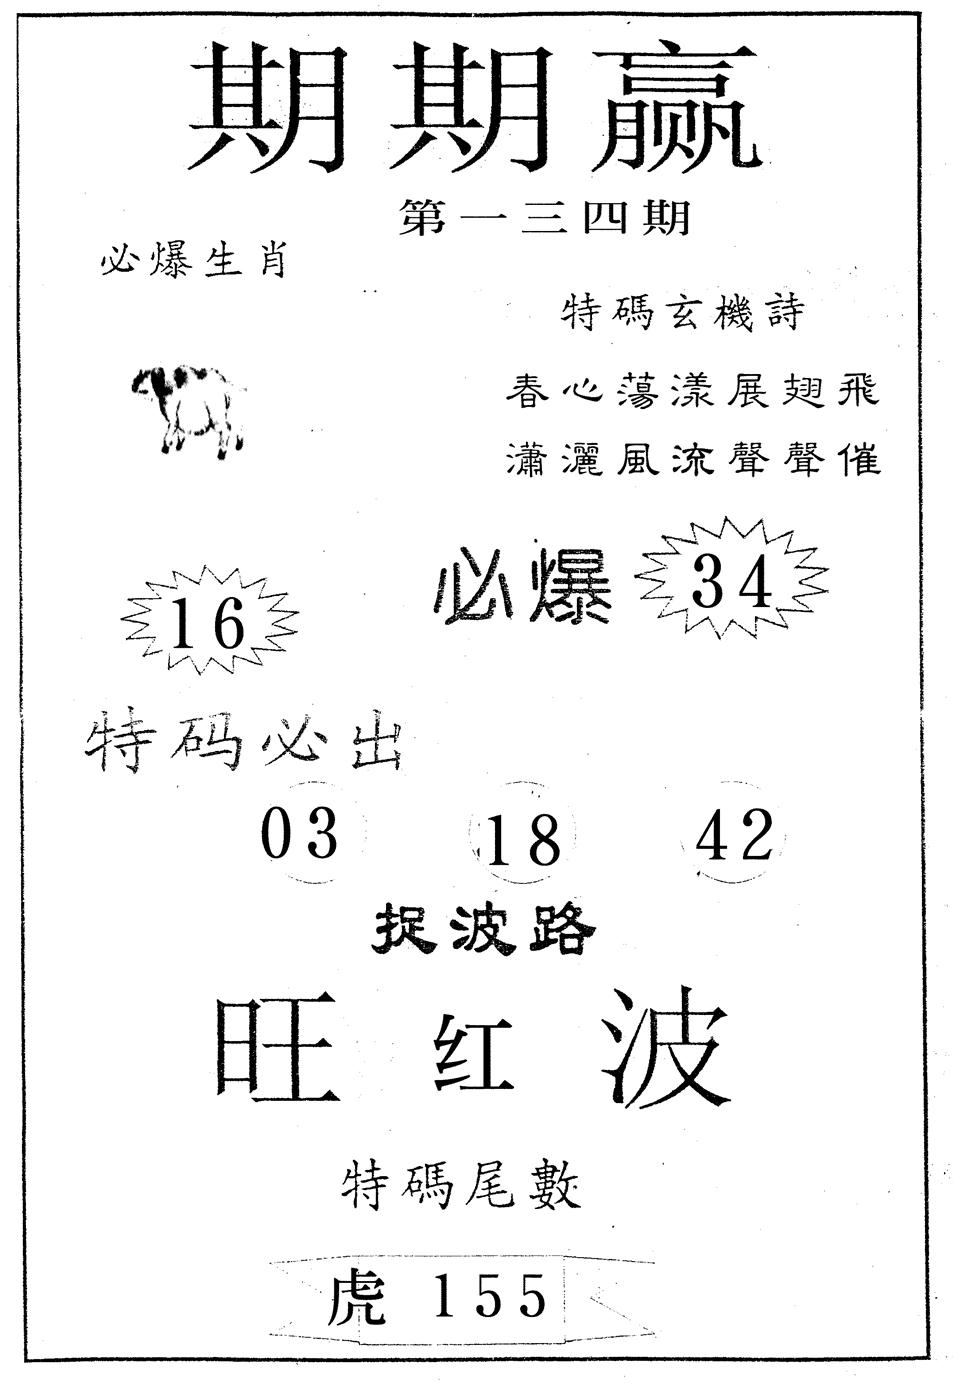 期期赢
第一三四期
必爆生肖
特碼玄機詩
春心蕩漾展翅飛
瀟灑風流聲聲催
必爆 34
16
特码必出
03 18 42
捉波路
旺红波
特碼尾數
虎 155